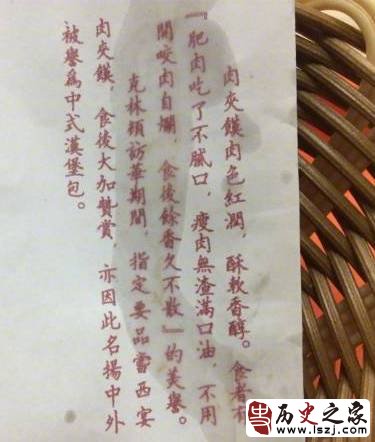 肉夾饃肉色紅潤，酥軟香醇。食者有
『肥肉吃了不膩口，瘦肉無渣滿口油，不用
關咬肉自爛，食後餘香久不散』的美譽。
克林頓訪華期間，指定要品嘗西安
肉夾饃，食後大加贊賞，亦因此名揚中外
被譽爲中式漢堡包。
历史之家
www.lszj.com